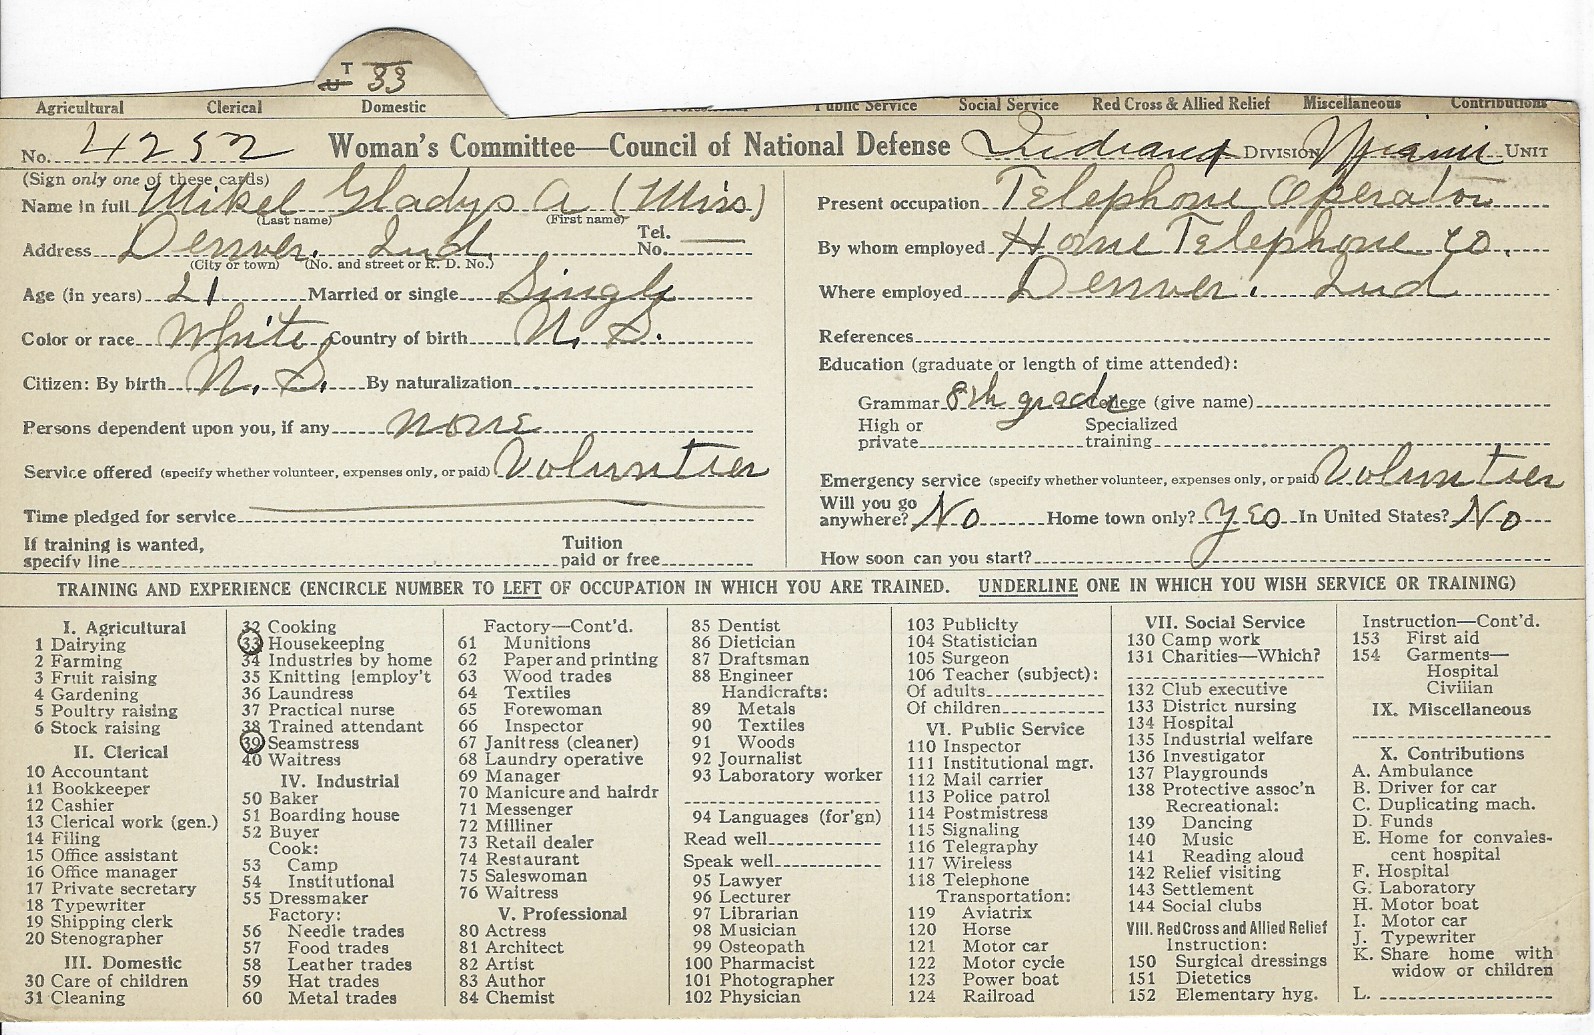 T
U 33
Agricultural Clerical Domestic Professional Public Service Social Service Red Cross & Allied Relief Miscellaneous Contributions
No. 4252 Woman's Committee—Council of National Defense Indiana DIVISION Miami UNIT
(Sign only one of these cards)
Name in full Mikel Gladys A (Miss)
(Last name) (First name)
Address Denver. Ind. Tel. No.
(City or town) (No. and street or R. D. No.)
Age (in years) 21 Married or single Single
Color or race White Country of birth U. S.
Citizen: By birth U. S. By naturalization
Persons dependent upon you, if any none
Service offered (specify whether volunteer, expenses only, or paid) Volunteer
Time pledged for service
If training is wanted, specify line Tuition paid or free
Present occupation Telephone Operator
By whom employed Home Telephone Co.
Where employed Denver. Ind
References
Education (graduate or length of time attended):
Grammar 8th grade College (give name)
High or private Specialized training
Emergency service (specify whether volunteer, expenses only, or paid) Volunteer
Will you go anywhere? No Home town only? Yes In United States? No
How soon can you start?
TRAINING AND EXPERIENCE (ENCIRCLE NUMBER TO LEFT OF OCCUPATION IN WHICH YOU ARE TRAINED. UNDERLINE ONE IN WHICH YOU WISH SERVICE OR TRAINING)
I. Agricultural
1 Dairying
2 Farming
3 Fruit raising
4 Gardening
5 Poultry raising
6 Stock raising
II. Clerical
10 Accountant
11 Bookkeeper
12 Cashier
13 Clerical work (gen.)
14 Filing
15 Office assistant
16 Office manager
17 Private secretary
18 Typewriter
19 Shipping clerk
20 Stenographer
III. Domestic
30 Care of children
31 Cleaning
32 Cooking
33 Housekeeping
34 Industries by home
35 Knitting [employ't
36 Laundress
37 Practical nurse
38 Trained attendant
39 Seamstress
40 Waitress
IV. Industrial
50 Baker
51 Boarding house
52 Buyer
Cook:
53 Camp
54 Institutional
55 Dressmaker
Factory:
56 Needle trades
57 Food trades
58 Leather trades
59 Hat trades
60 Metal trades
Factory—Cont'd.
61 Munitions
62 Paper and printing
63 Wood trades
64 Textiles
65 Forewoman
66 Inspector
67 Janitress (cleaner)
68 Laundry operative
69 Manager
70 Manicure and hairdr
71 Messenger
72 Milliner
73 Retail dealer
74 Restaurant
75 Saleswoman
76 Waitress
V. Professional
80 Actress
81 Architect
82 Artist
83 Author
84 Chemist
85 Dentist
86 Dietician
87 Draftsman
88 Engineer
Handicrafts:
89 Metals
90 Textiles
91 Woods
92 Journalist
93 Laboratory worker
94 Languages (for'gn)
Read well
Speak well
95 Lawyer
96 Lecturer
97 Librarian
98 Musician
99 Osteopath
100 Pharmacist
101 Photographer
102 Physician
103 Publicity
104 Statistician
105 Surgeon
106 Teacher (subject):
Of adults
Of children
VI. Public Service
110 Inspector
111 Institutional mgr.
112 Mail carrier
113 Police patrol
114 Postmistress
115 Signaling
116 Telegraphy
117 Wireless
118 Telephone
Transportation:
119 Aviatrix
120 Horse
121 Motor car
122 Motor cycle
123 Power boat
124 Railroad
VII. Social Service
130 Camp work
131 Charities—Which?
132 Club executive
133 District nursing
134 Hospital
135 Industrial welfare
136 Investigator
137 Playgrounds
138 Protective assoc'n
Recreational:
139 Dancing
140 Music
141 Reading aloud
142 Relief visiting
143 Settlement
144 Social clubs
VIII. Red Cross and Allied Relief
Instruction:
150 Surgical dressings
151 Dietetics
152 Elementary hyg.
Instruction—Cont'd.
153 First aid
154 Garments—
Hospital
Civilian
IX. Miscellaneous
X. Contributions
A. Ambulance
B. Driver for car
C. Duplicating mach.
D. Funds
E. Home for convales-
cent hospital
F. Hospital
G. Laboratory
H. Motor boat
I. Motor car
J. Typewriter
K. Share home with
widow or children
L.